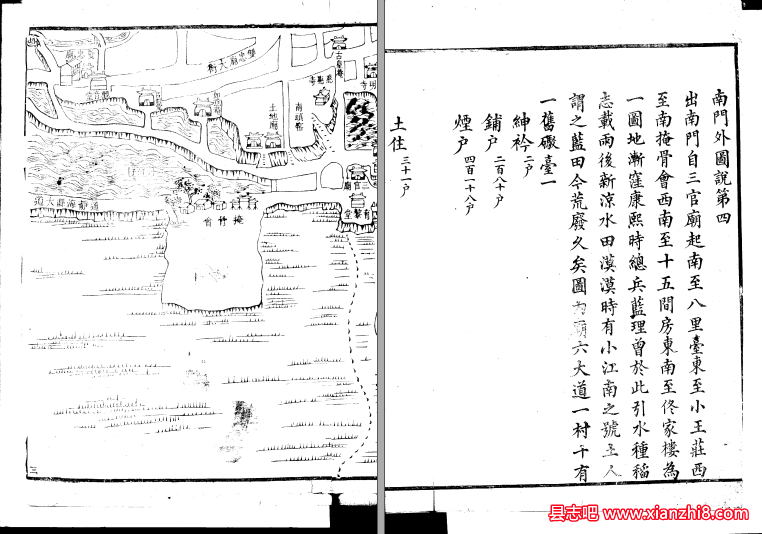 南門外圖說第四
出南門自三官廟起南至八里臺東至小王莊西
至南掩骨會西南至十五間房東南至佟家樓為
一圖地漸窪康熙時總兵藍理曾於此引水種稻
志載雨後新涼水田漠漠時有小江南之號土人
謂之藍田今荒廢久矣圖內廟六大道一村十有
一舊礮臺一
紳衿二戶
鋪戶二百八十戶
煙戶四百一十八戶
土住三十一戶
土地廟
三官廟
育黎堂
三
县志吧 www.xianzhi8.com